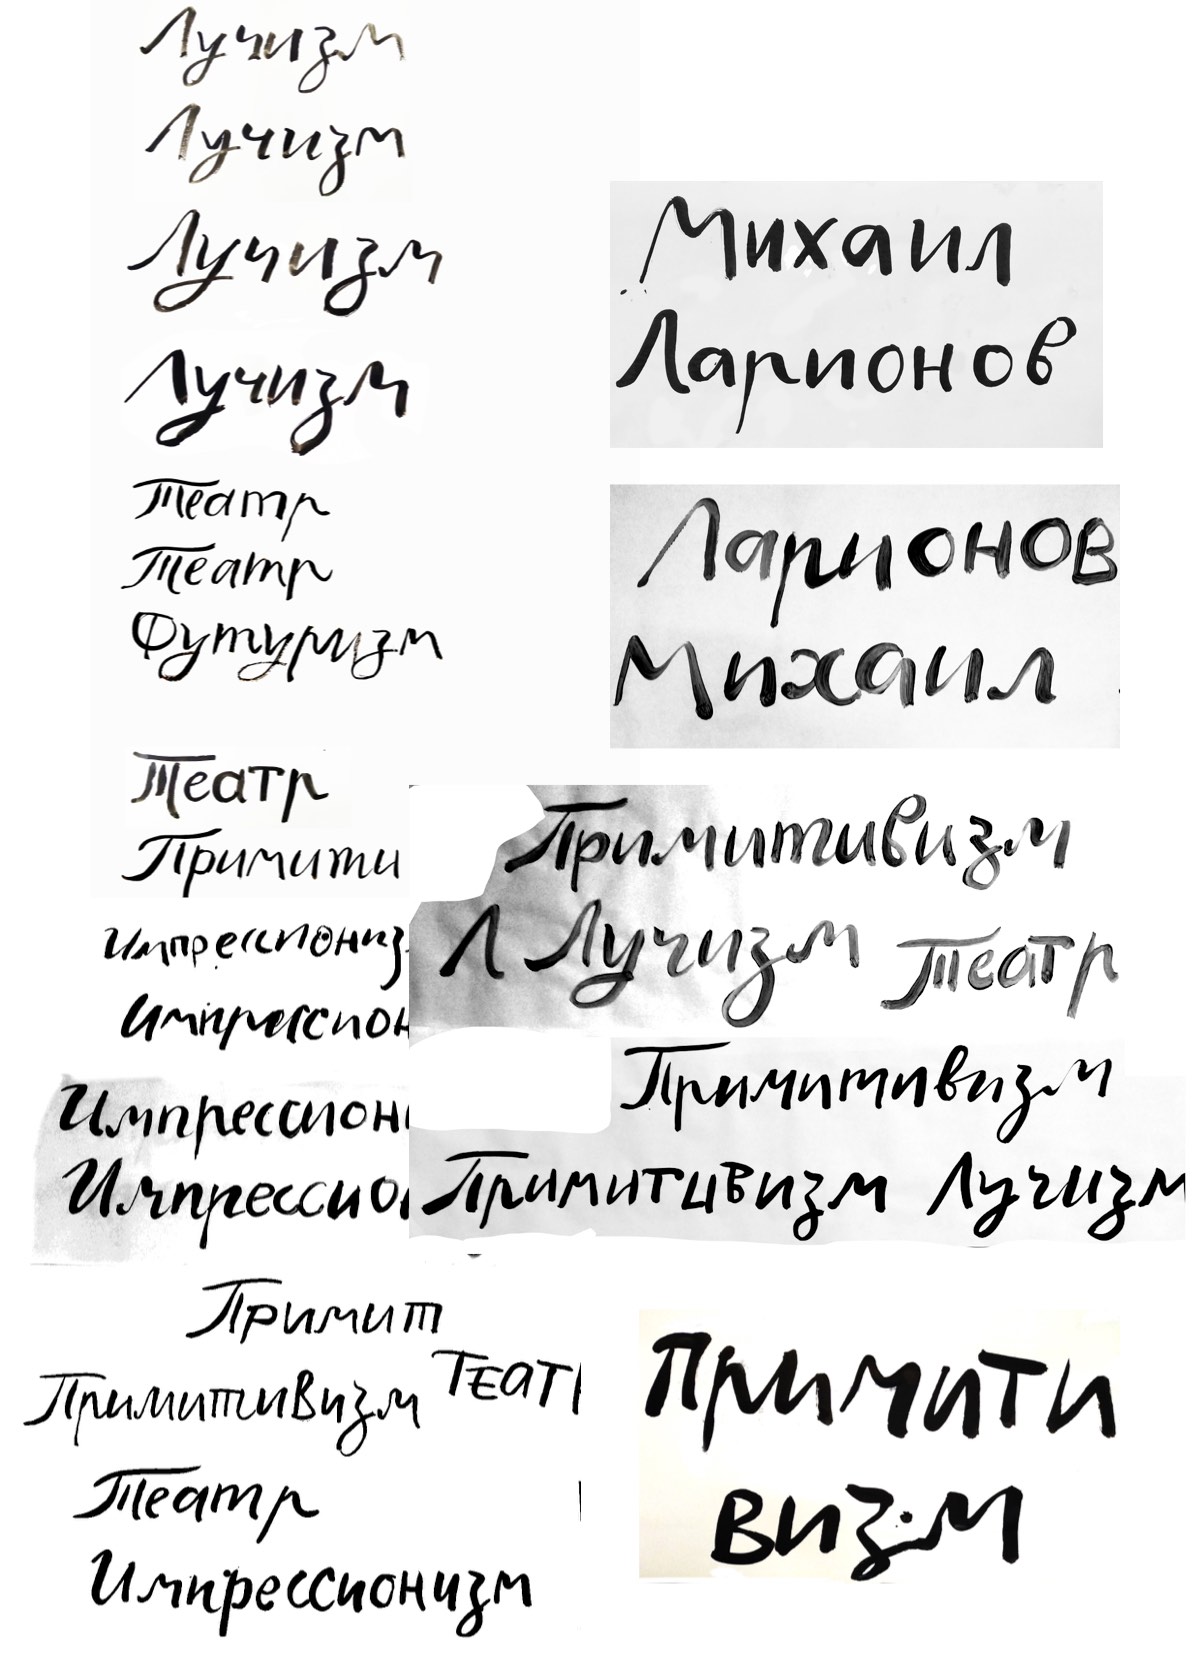 Лучизм
Лучизм
Лучизм
Лучизм
Театр
Театр
Футуризм
Театр
Примити
Импрессиониз
Импрессион
Импрессион
Импрессио
Примит
Примитивизм
ТЕАТ
Театр
Импрессионизм
Михаил
Ларионов
Ларионов
Михаил
Примитивизм
Л Лучизм Театр
Примитивизм
Примитивизм Лучизм
Примити
визм